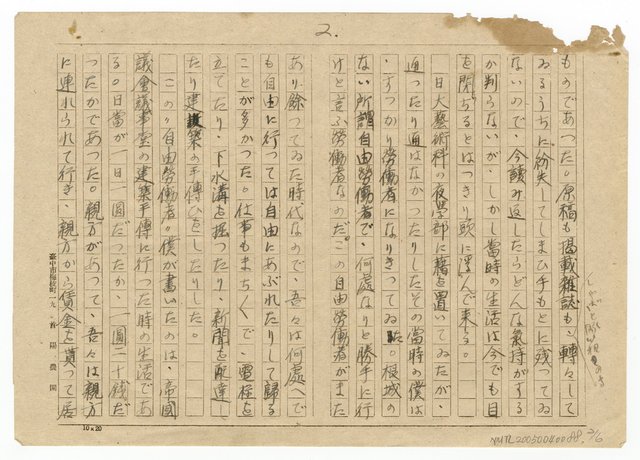 2.
ものであつた。原稿も掲載雑誌もこ轉々して
ゐるうちに紛失してしまひ手もとに残つてゐ
ないので、今讀み返したらどんな氣持がする
か判らないが、しかし当時の生活は今でも目
を閉ぢるとはつきり頭に浮んで来る。
日大藝術科の夜学部に籍を置いてゐたが、
通つたり通はなかつたりしたその當時の僕は
、すつかり労働者になりきつてゐた。根城の
ない所謂自由労働者で、何處なりと勝手に行
けと言ふ労働者なのだ。この自由労働者がまた
あり餘つてゐた時代なので、吾々は何處へで
も自由に行つては自由にあぶれたりして歸る
ことが多かつた。仕事もまちくで、電柱を
立てたり、下水溝を掘つたり、新聞を配達し
たり建築の手傳ひをしたりした。
このり自由労働者。僕が書いたのは、帝國
議會議事堂の建築手傳に行つた時の生活であ
る。日當が一日一圓だつたか、一圓二十銭だ
つたかであつた。親方があつて、吾々は親方
に連れられて行き、親方から賃金を貰つて居
臺中市梅枝町一九 首陽農園
10×20
NMTL20050040088 2/6